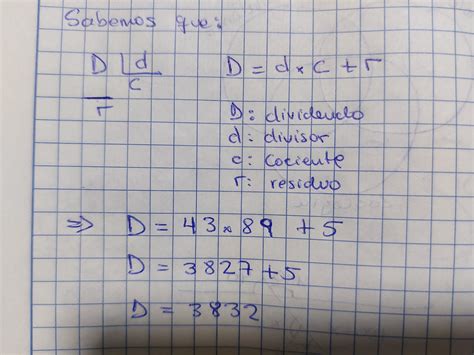 Sabemos que:
D | d D = d x c + r
c
r
D: dividendo
d: divisor
c: cociente
r: residuo
⇒ D = 43 x 89 + 5
D = 3827 + 5
D = 3832